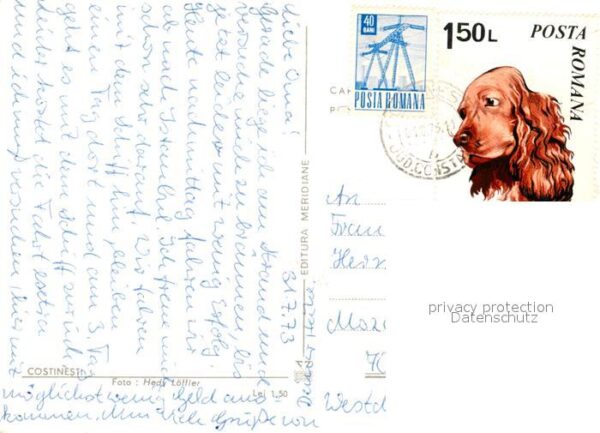 31.7.73
Liebe Oma!
Gerade liege ich am Strand und
versuche mich zu bräunen, bis
jetzt leider mit wenig Erfolg.
Heute nachmittag fahren wir
ab nach Istanbul. Ich freue mich
schon sehr darauf. Wir fahren
mit dem Schiff hin, bleiben
einen Tag dort und am 3. Tag
geht es mit dem Schiff zurück.
Leider kostet die Fahrt extra
und ich muß versuchen, hier mit
möglichst wenig Geld aus-
kommen. Nun viele Grüße von
COSTINEȘTI
Foto : Hedy Löffler
Lei 1,50
EDITURA MERIDIANE
40
BANI
POSTA ROMANA
1,50 L
POSTA
ROMANA
JUD. CONSTA
An
Frau
privacy protection
Datenschutz